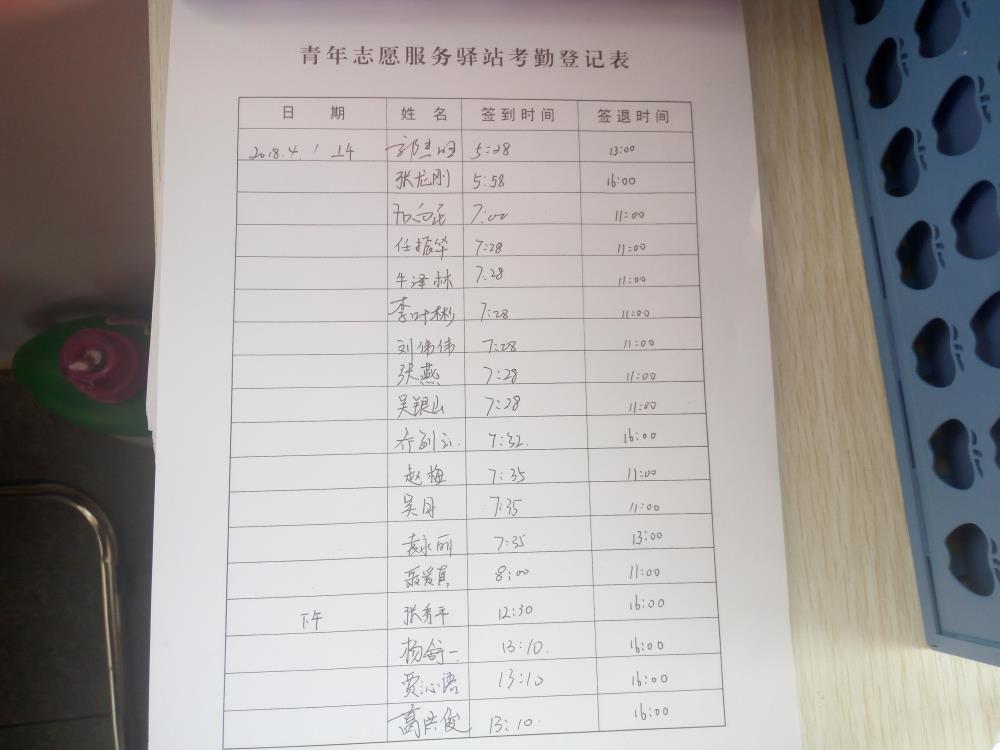 青年志愿服务驿站考勤登记表
日 期 姓 名 签到时间 签退时间
2018.4.1 上午 5:28 13:00
张龙刚 5:58 16:00
7:00 11:00
任振华 7:28 11:00
牛泽林 7:28 11:00
李叶彬 7:28 11:00
刘伟伟 7:28 11:00
张燕 7:28 11:00
吴银山 7:28 11:00
7:32. 16:00
赵梅 7:35 11:00
吴月 7:35 11:00
袁永丽 7:35 13:00
聂爱真 8:00 11:00
下午 张秀平 12:30 16:00
杨舒一. 13:10. 16:00
贾沁语 13:10 16:00
高洪俊 13:10. 16:00